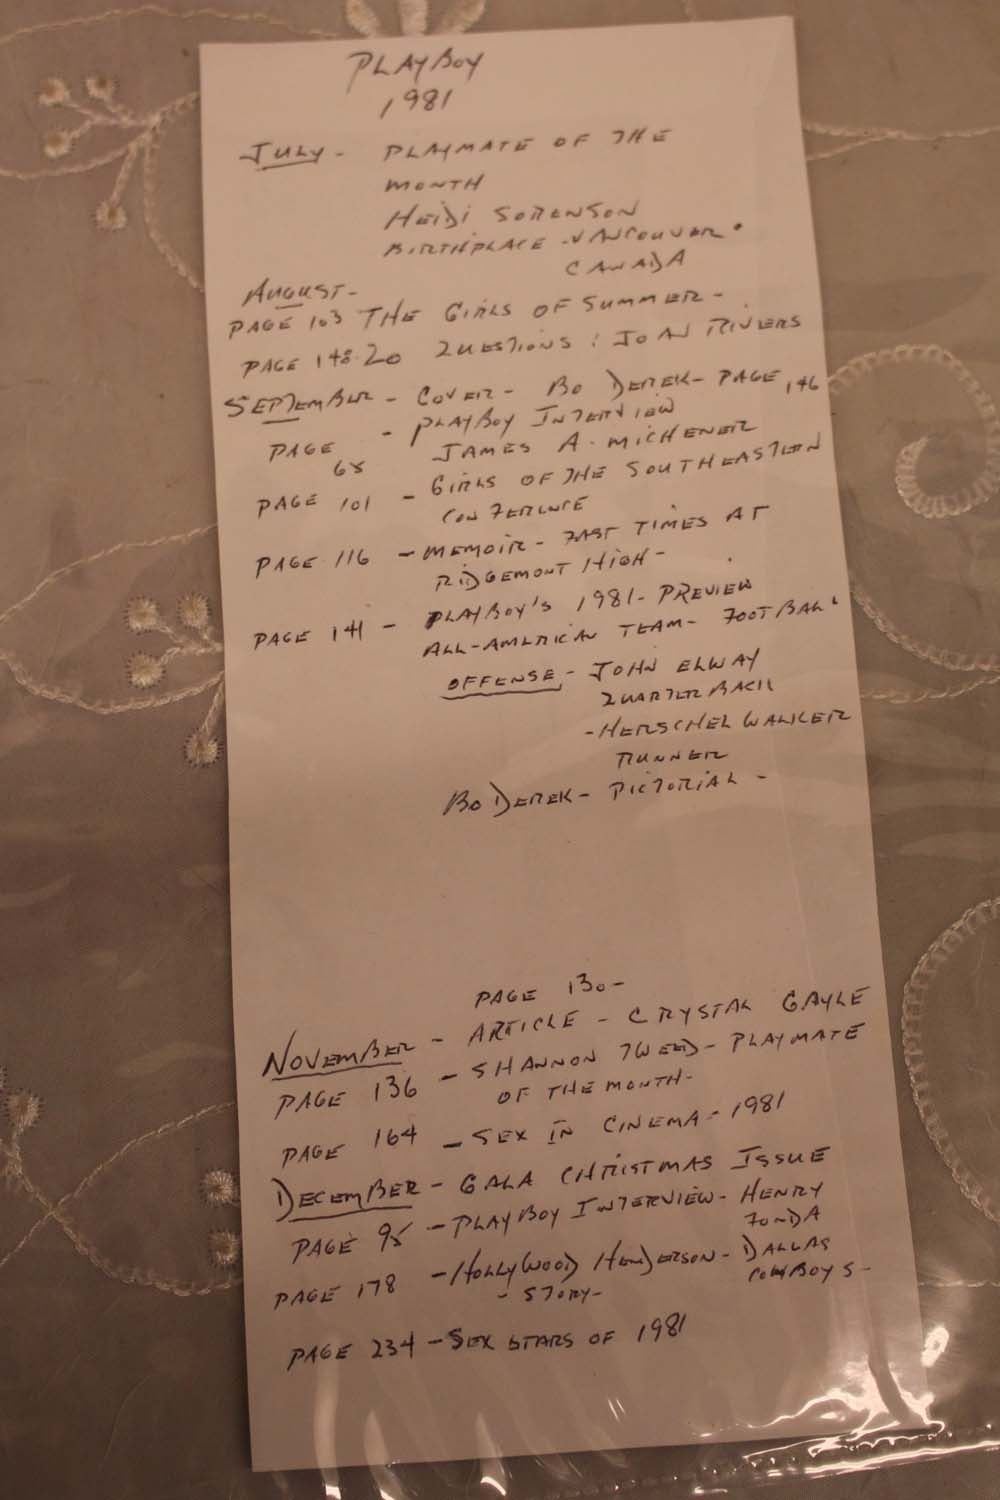 PLAYBOY
1981
JULY - PLAYMATE OF THE
MONTH
HEIDI SORENSON
BIRTHPLACE - VANCOUVER.
CANADA
AUGUST -
PAGE 103 THE GIRLS OF SUMMER -
PAGE 148-20 QUESTIONS: JOAN RIVERS
SEPTEMBER - COVER - BO DEREK - PAGE 146
PAGE 65 - PLAYBOY INTERVIEW
JAMES A. MICHENER
PAGE 101 - GIRLS OF THE SOUTHEASTERN
CONFERENCE
PAGE 116 - MEMOIR - FAST TIMES AT
RIDGEMONT HIGH -
PAGE 141 - PLAYBOY'S 1981 - PREVIEW
ALL-AMERICAN TEAM - FOOTBALL
OFFENSE - JOHN ELWAY
QUARTERBACK
- HERSCHEL WALKER
RUNNER
BO DEREK - PICTORIAL -
PAGE 130 -
NOVEMBER - ARTICLE - CRYSTAL GAYLE
PAGE 136 - SHANNON TWEED - PLAYMATE
OF THE MONTH -
PAGE 164 - SEX IN CINEMA - 1981
DECEMBER - GALA CHRISTMAS ISSUE
PAGE 95 - PLAYBOY INTERVIEW - HENRY
FONDA
PAGE 178 - HOLLYWOOD HENDERSON - DALLAS
- STORY - COWBOYS -
PAGE 234 - SEX STARS OF 1981